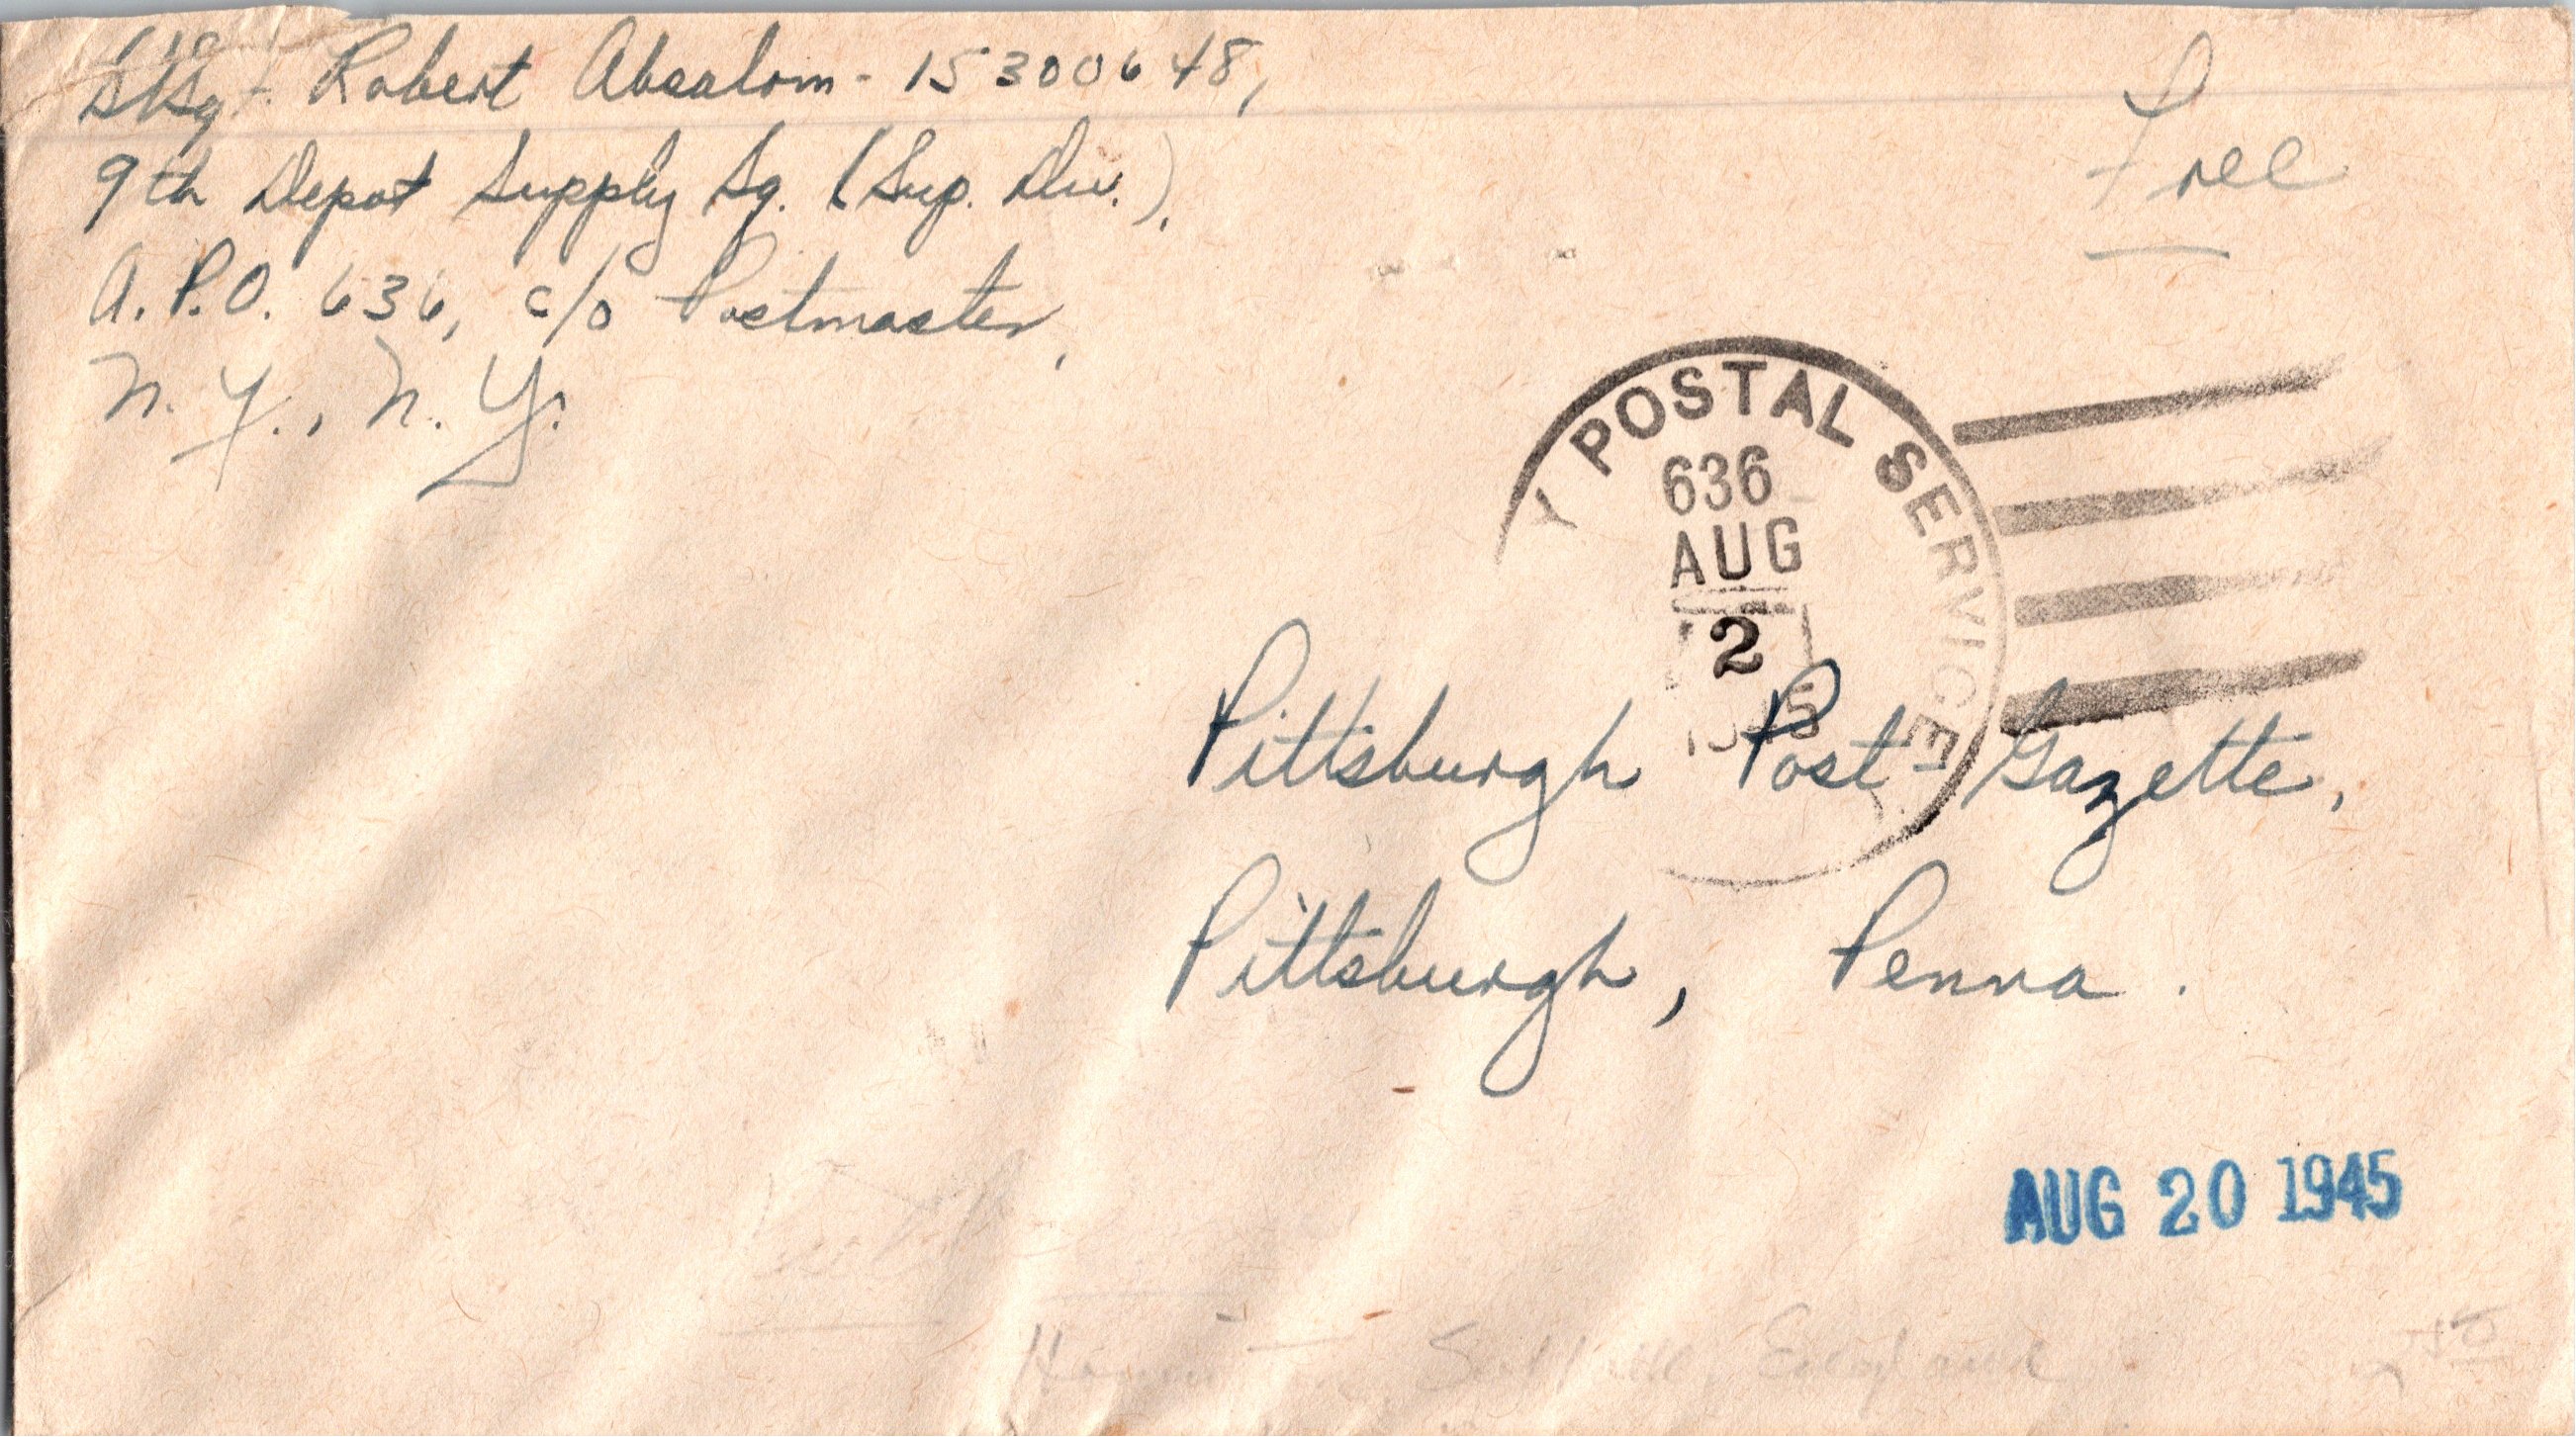 S/Sgt. Robert Absalom - 15300648,
9th Depot Supply Sq. (Sup. Div.),
A.P.O. 636, c/o Postmaster,
N.Y., N.Y.
Free
Y POSTAL SERVICE
636
AUG
2
1945
Pittsburgh Post-Gazette,
Pittsburgh, Penna.
AUG 20 1945
England